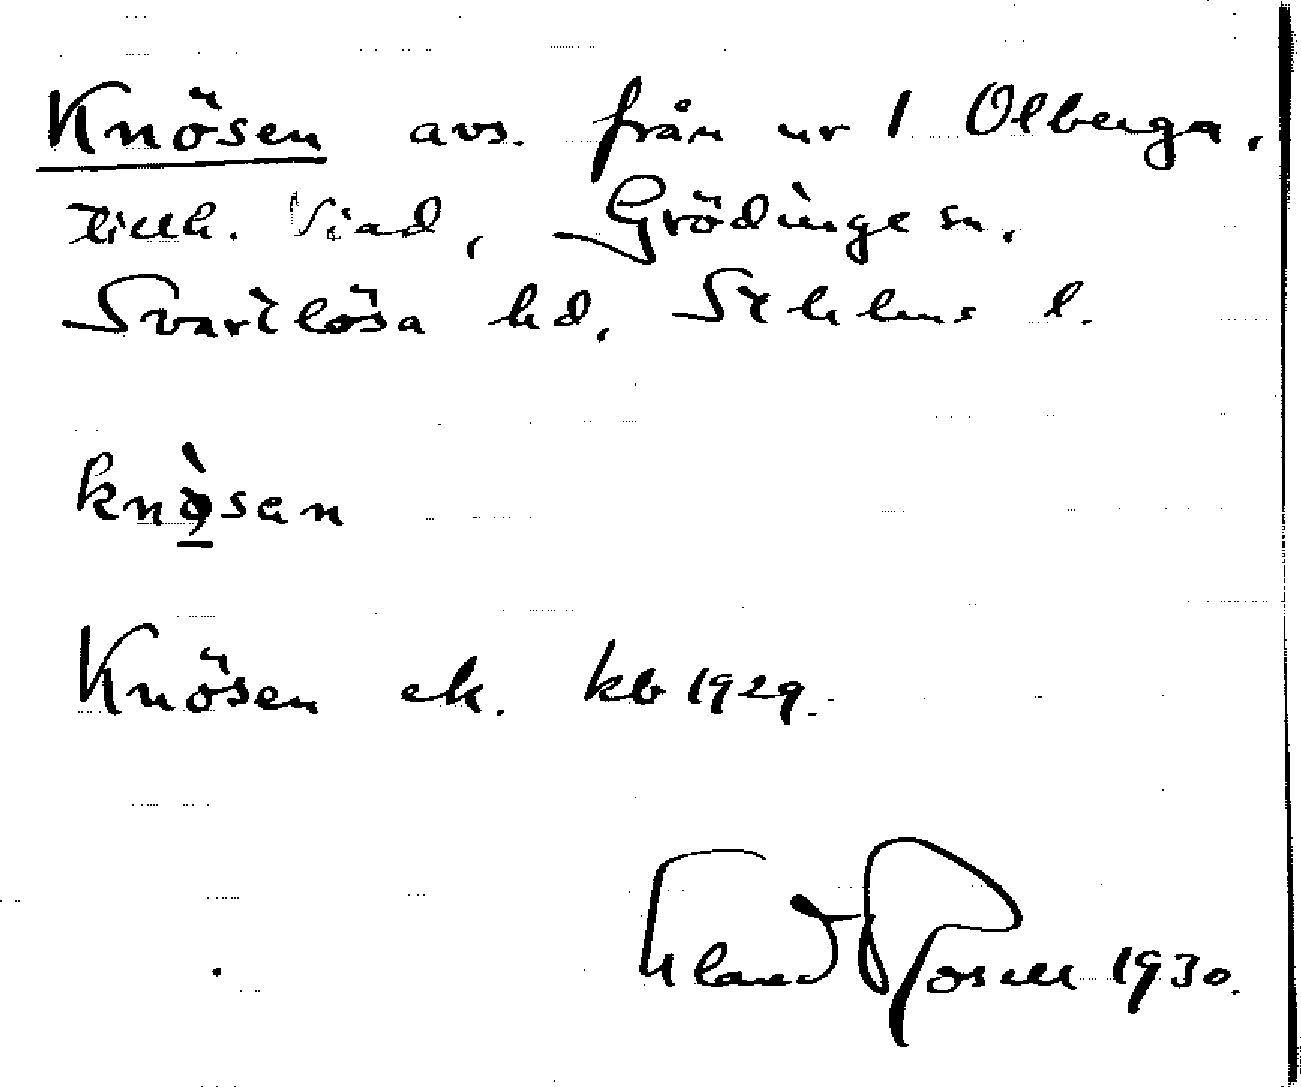 Knösen avs. från nr 1 Olberga,
tillh. Viad, Grödinge sn,
Svartlösa hd, Sthlms l.
knò̱san
Knösen ek. kb 1929.
Eland Rosell 1930.